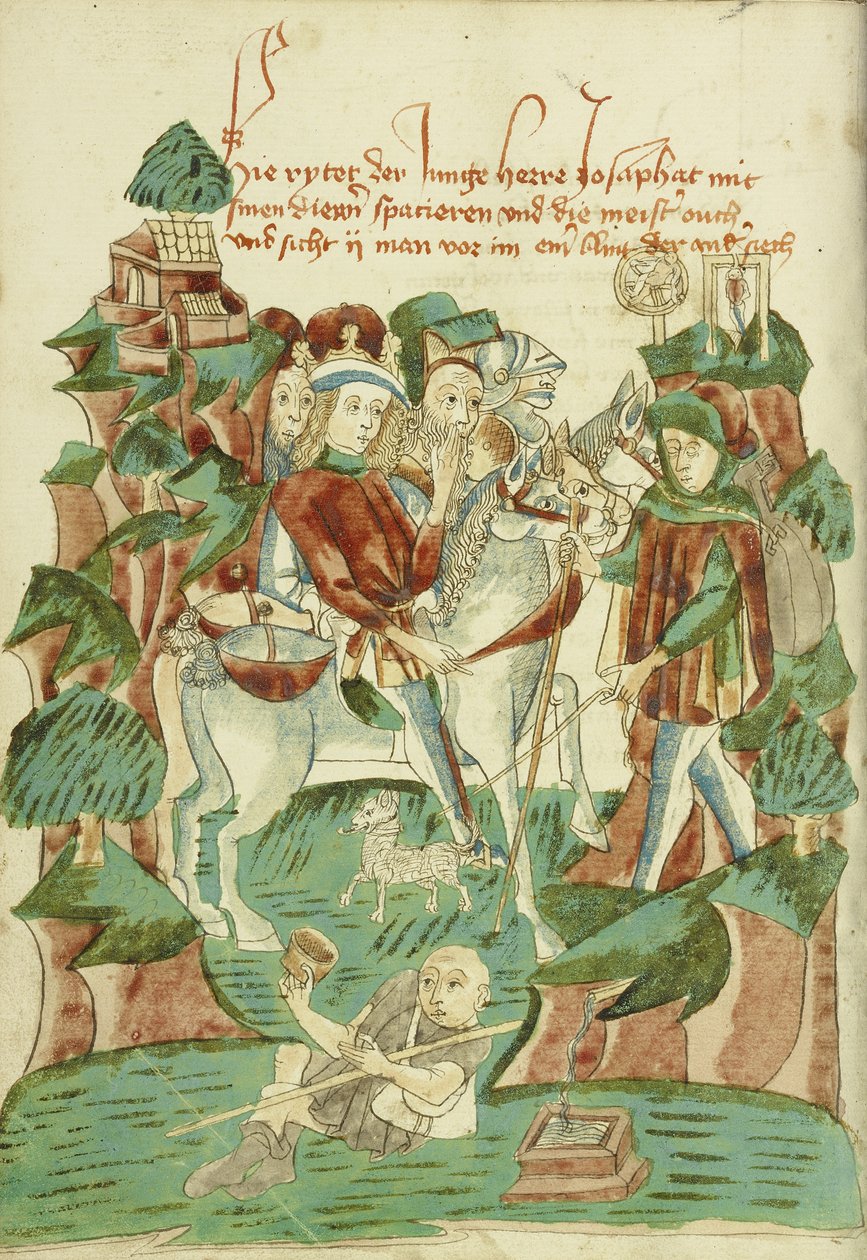 Hie rytet der Junge herre Josaphat mit
sinen diener spacieren vnd die meister ouch
vnd sicht ij man vor im ein blint der ander siech